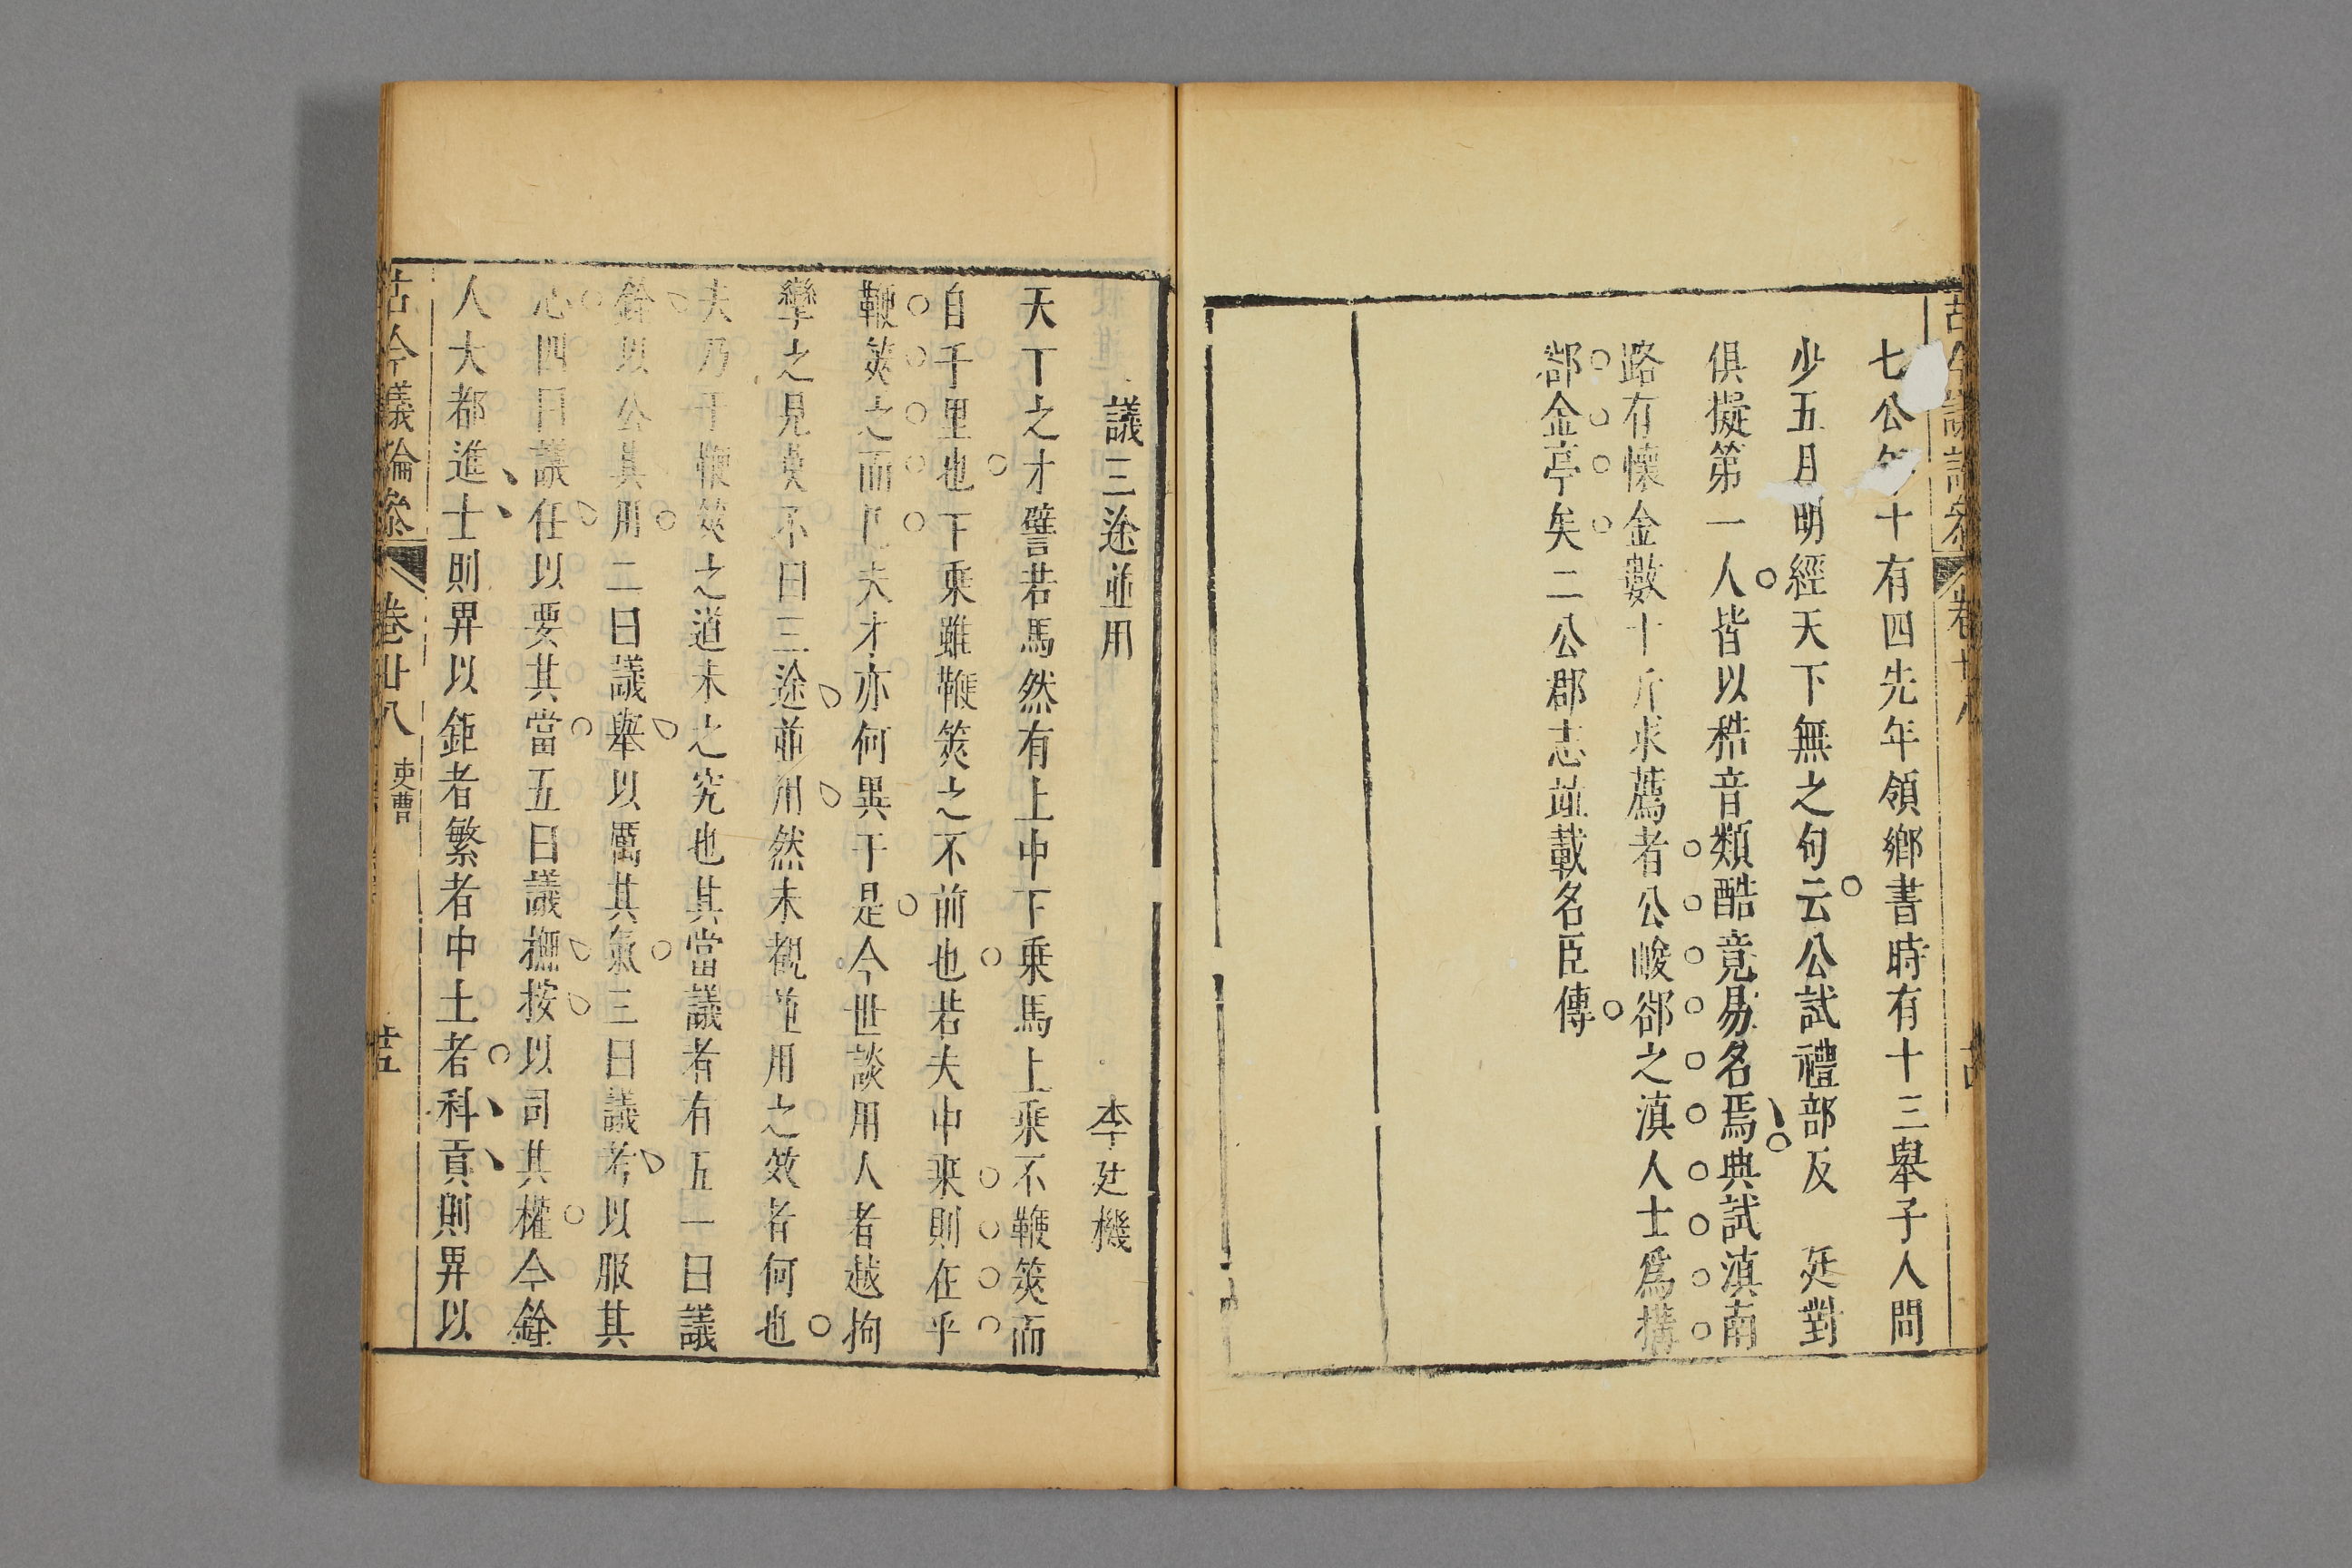 七公年十有四先年領鄉書時有十三舉子人問
少五月明經天下無之句云公試禮部反　廷對
俱擬第一人皆以稓音類酷竟易名焉典試滇南
路有懷金數十斤求薦者公峻郤之滇人士爲搆
郤金亭矣二公郡志竝載名臣傳
議三途並用　李廷機
天下之才譬若馬然有上中下乗馬上乗不鞭筴而
自千里也下乗雖鞭筴之不前也若夫中乗則在乎
鞭筴之而已夫才亦何異于是今世談用人者越拘
攣之見莫不曰三途並用然未覩並用之效者何也
夫乃于鞭筴之道未之究也其當議者有五一曰議
銓以公其用二曰議舉以厲其氣三曰議考以服其
心四曰議任以要其當五曰議撫按以司其權今銓
人大都進士則畀以鉅者繁者中土者科貢則畀以
古今議論叅　卷廿八　吏曹